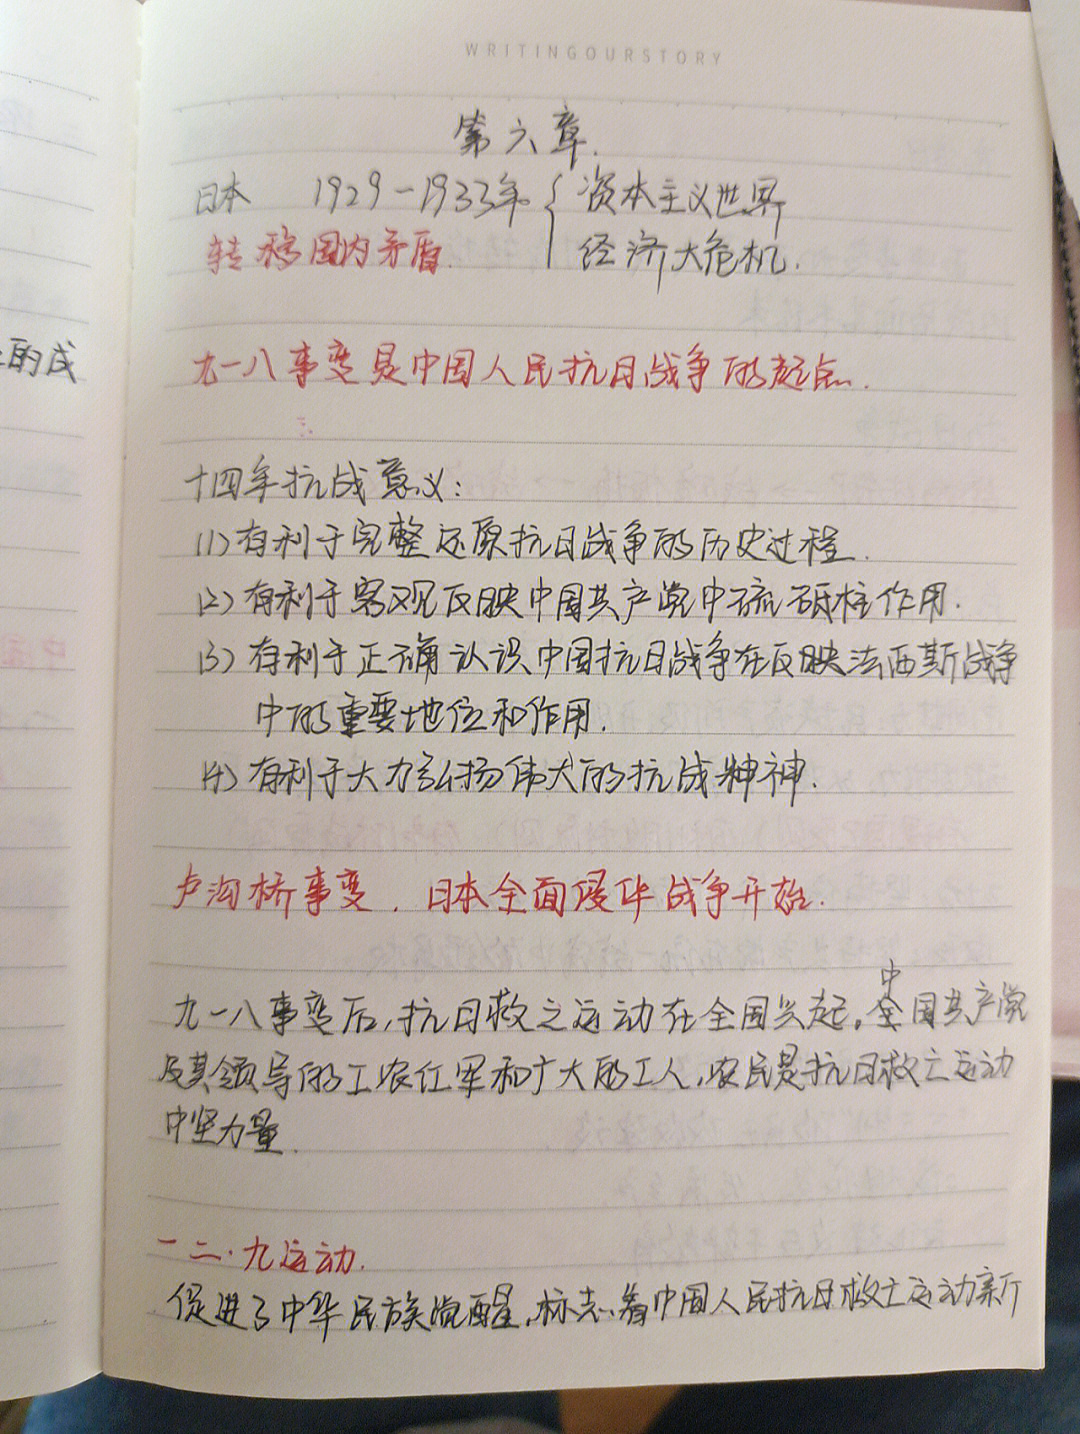 WRITINGOURSTORY
第六章.
日本 1929-1933年 { 资本主义世界
转移国内矛盾. 经济大危机.
九一八事变是中国人民抗日战争的起点.
十四年抗战意义:
(1)有利于完整还原抗日战争的历史过程.
(2)有利于客观反映中国共产党中硫砥柱作用.
(3)有利于正确认识中国抗日战争在反映法西斯战争
中的重要地位和作用.
(4)有利于大力弘扬伟大的抗战精神.
卢沟桥事变.日本全面侵华战争开始.
中
九一八事变后,抗日救之运动在全国兴起。全国共产党
及其领导的工农红军和广大的工人,农民是抗日救亡运动
中坚力量.
一二·九运动.
促进了中华民族觉醒,标志着中国人民抗日救亡运动新
的成